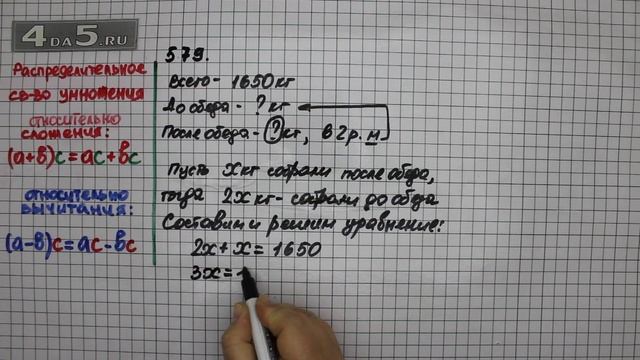 4DA5.RU
Распределительное
св-во умножения
относительно
сложения:
(а+в)с=ас+вс
относительно
вычитания:
(а-в)с=ас-вс
579.
Всего - 1650 кг
До обеда - ? кг
После обеда - ? кг, в 2 р. м
Пусть х кг собрали после обеда,
тогда 2х кг - собрали до обеда
Составим и решим уравнение:
2х + х = 1650
3х = 1